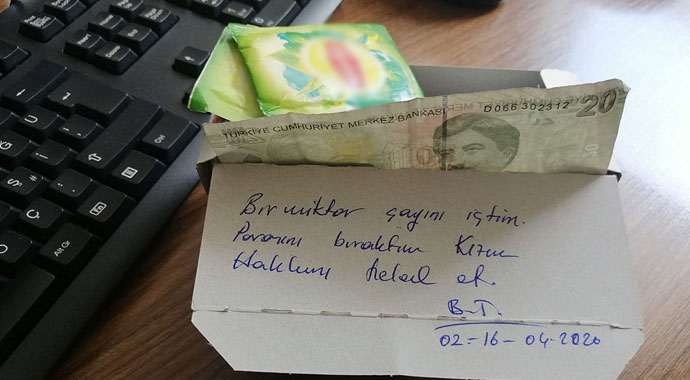 TÜRKİYE CUMHURİYET MERKEZ BANKASI
D066 302312
20
Bir miktar çayını içtim.
Parasını bıraktım Kızım
Hakkını helal et.
B.T.
02-16-04-2020
Alt Gr
Fn